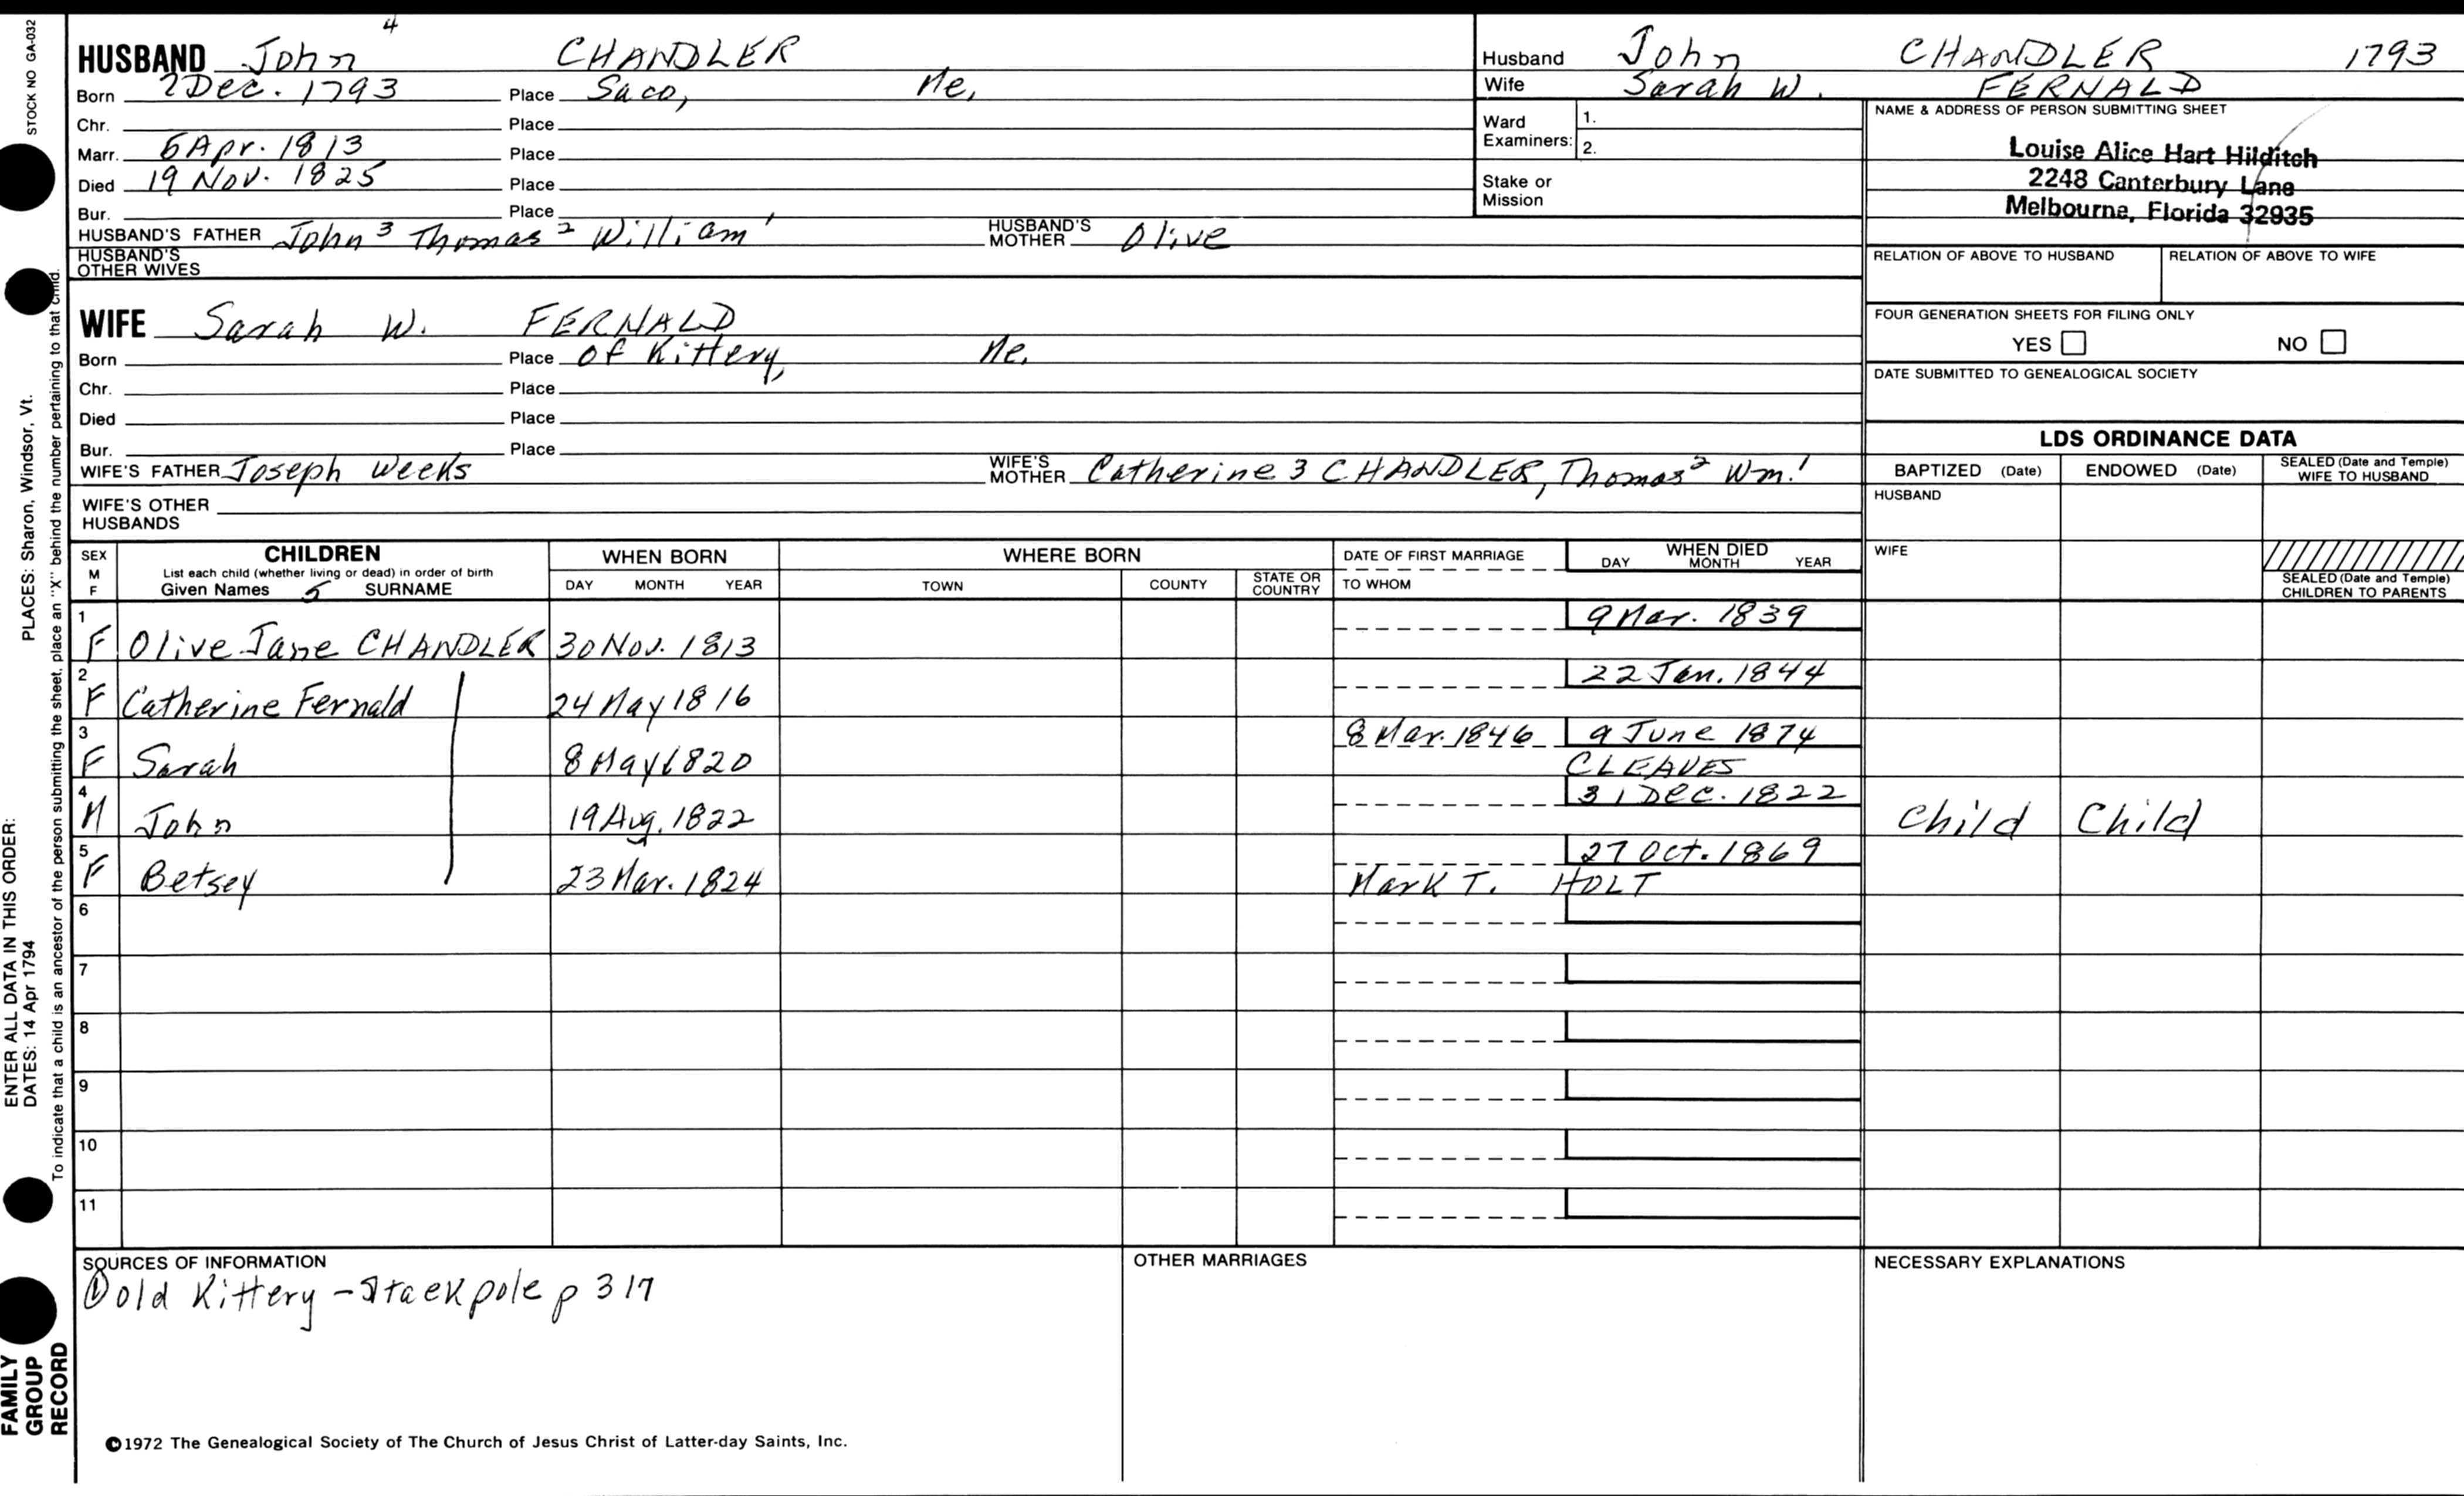 STOCK NO GA-032
PLACES: Sharon, Windsor, Vt.
ENTER ALL DATA IN THIS ORDER:
DATES: 14 Apr 1794
To indicate that a child is an ancestor of the person submitting the sheet, place an "X" behind the number pertaining to that child.
FAMILY
GROUP
RECORD
HUSBAND John 4 CHANDLER
Born 2 Dec. 1793 Place Saco, Me.
Chr. Place
Marr. 6 Apr. 1813 Place
Died 19 Nov. 1825 Place
Bur. Place
HUSBAND'S FATHER John 3 Thomas 2 William 1 HUSBAND'S MOTHER Olive
HUSBAND'S OTHER WIVES
WIFE Sarah W. FERNALD
Born Place of Kittery, Me.
Chr. Place
Died Place
Bur. Place
WIFE'S FATHER Joseph Weeks WIFE'S MOTHER Catherine 3 CHANDLER, Thomas 2 Wm. 1
WIFE'S OTHER HUSBANDS
Husband John CHANDLER 1793
Wife Sarah W. FERNALD
Ward Examiners: 1. 2.
Stake or Mission
NAME & ADDRESS OF PERSON SUBMITTING SHEET
Louise Alice Hart Hilditch
2248 Canterbury Lane
Melbourne, Florida 32935
RELATION OF ABOVE TO HUSBAND RELATION OF ABOVE TO WIFE
FOUR GENERATION SHEETS FOR FILING ONLY
YES NO
DATE SUBMITTED TO GENEALOGICAL SOCIETY
LDS ORDINANCE DATA
BAPTIZED (Date) ENDOWED (Date) SEALED (Date and Temple) WIFE TO HUSBAND
HUSBAND
WIFE
SEALED (Date and Temple) CHILDREN TO PARENTS
SEX M F
CHILDREN
List each child (whether living or dead) in order of birth
Given Names 5 SURNAME
WHEN BORN
DAY MONTH YEAR
WHERE BORN
TOWN COUNTY STATE OR COUNTRY
DATE OF FIRST MARRIAGE
TO WHOM
WHEN DIED
DAY MONTH YEAR
1 F Olive Jane CHANDLER 30 Nov. 1813 9 Mar. 1839
2 F Catherine Fernald 24 May 1816 22 Jan. 1844
3 F Sarah 8 May 1820 8 Mar. 1846 9 June 1874
CLEAVES
4 M John 19 Aug. 1822 31 Dec. 1822 Child Child
5 F Betsey 23 Mar. 1824 27 Oct. 1869
Mark T. HOLT
6
7
8
9
10
11
SOURCES OF INFORMATION
① old Kittery - Stackpole p 317
OTHER MARRIAGES
NECESSARY EXPLANATIONS
©1972 The Genealogical Society of The Church of Jesus Christ of Latter-day Saints, Inc.